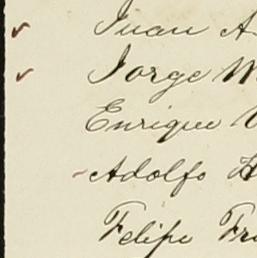 Juan A
Jorge W
Enrique
Adolfo H
Felipe Fr